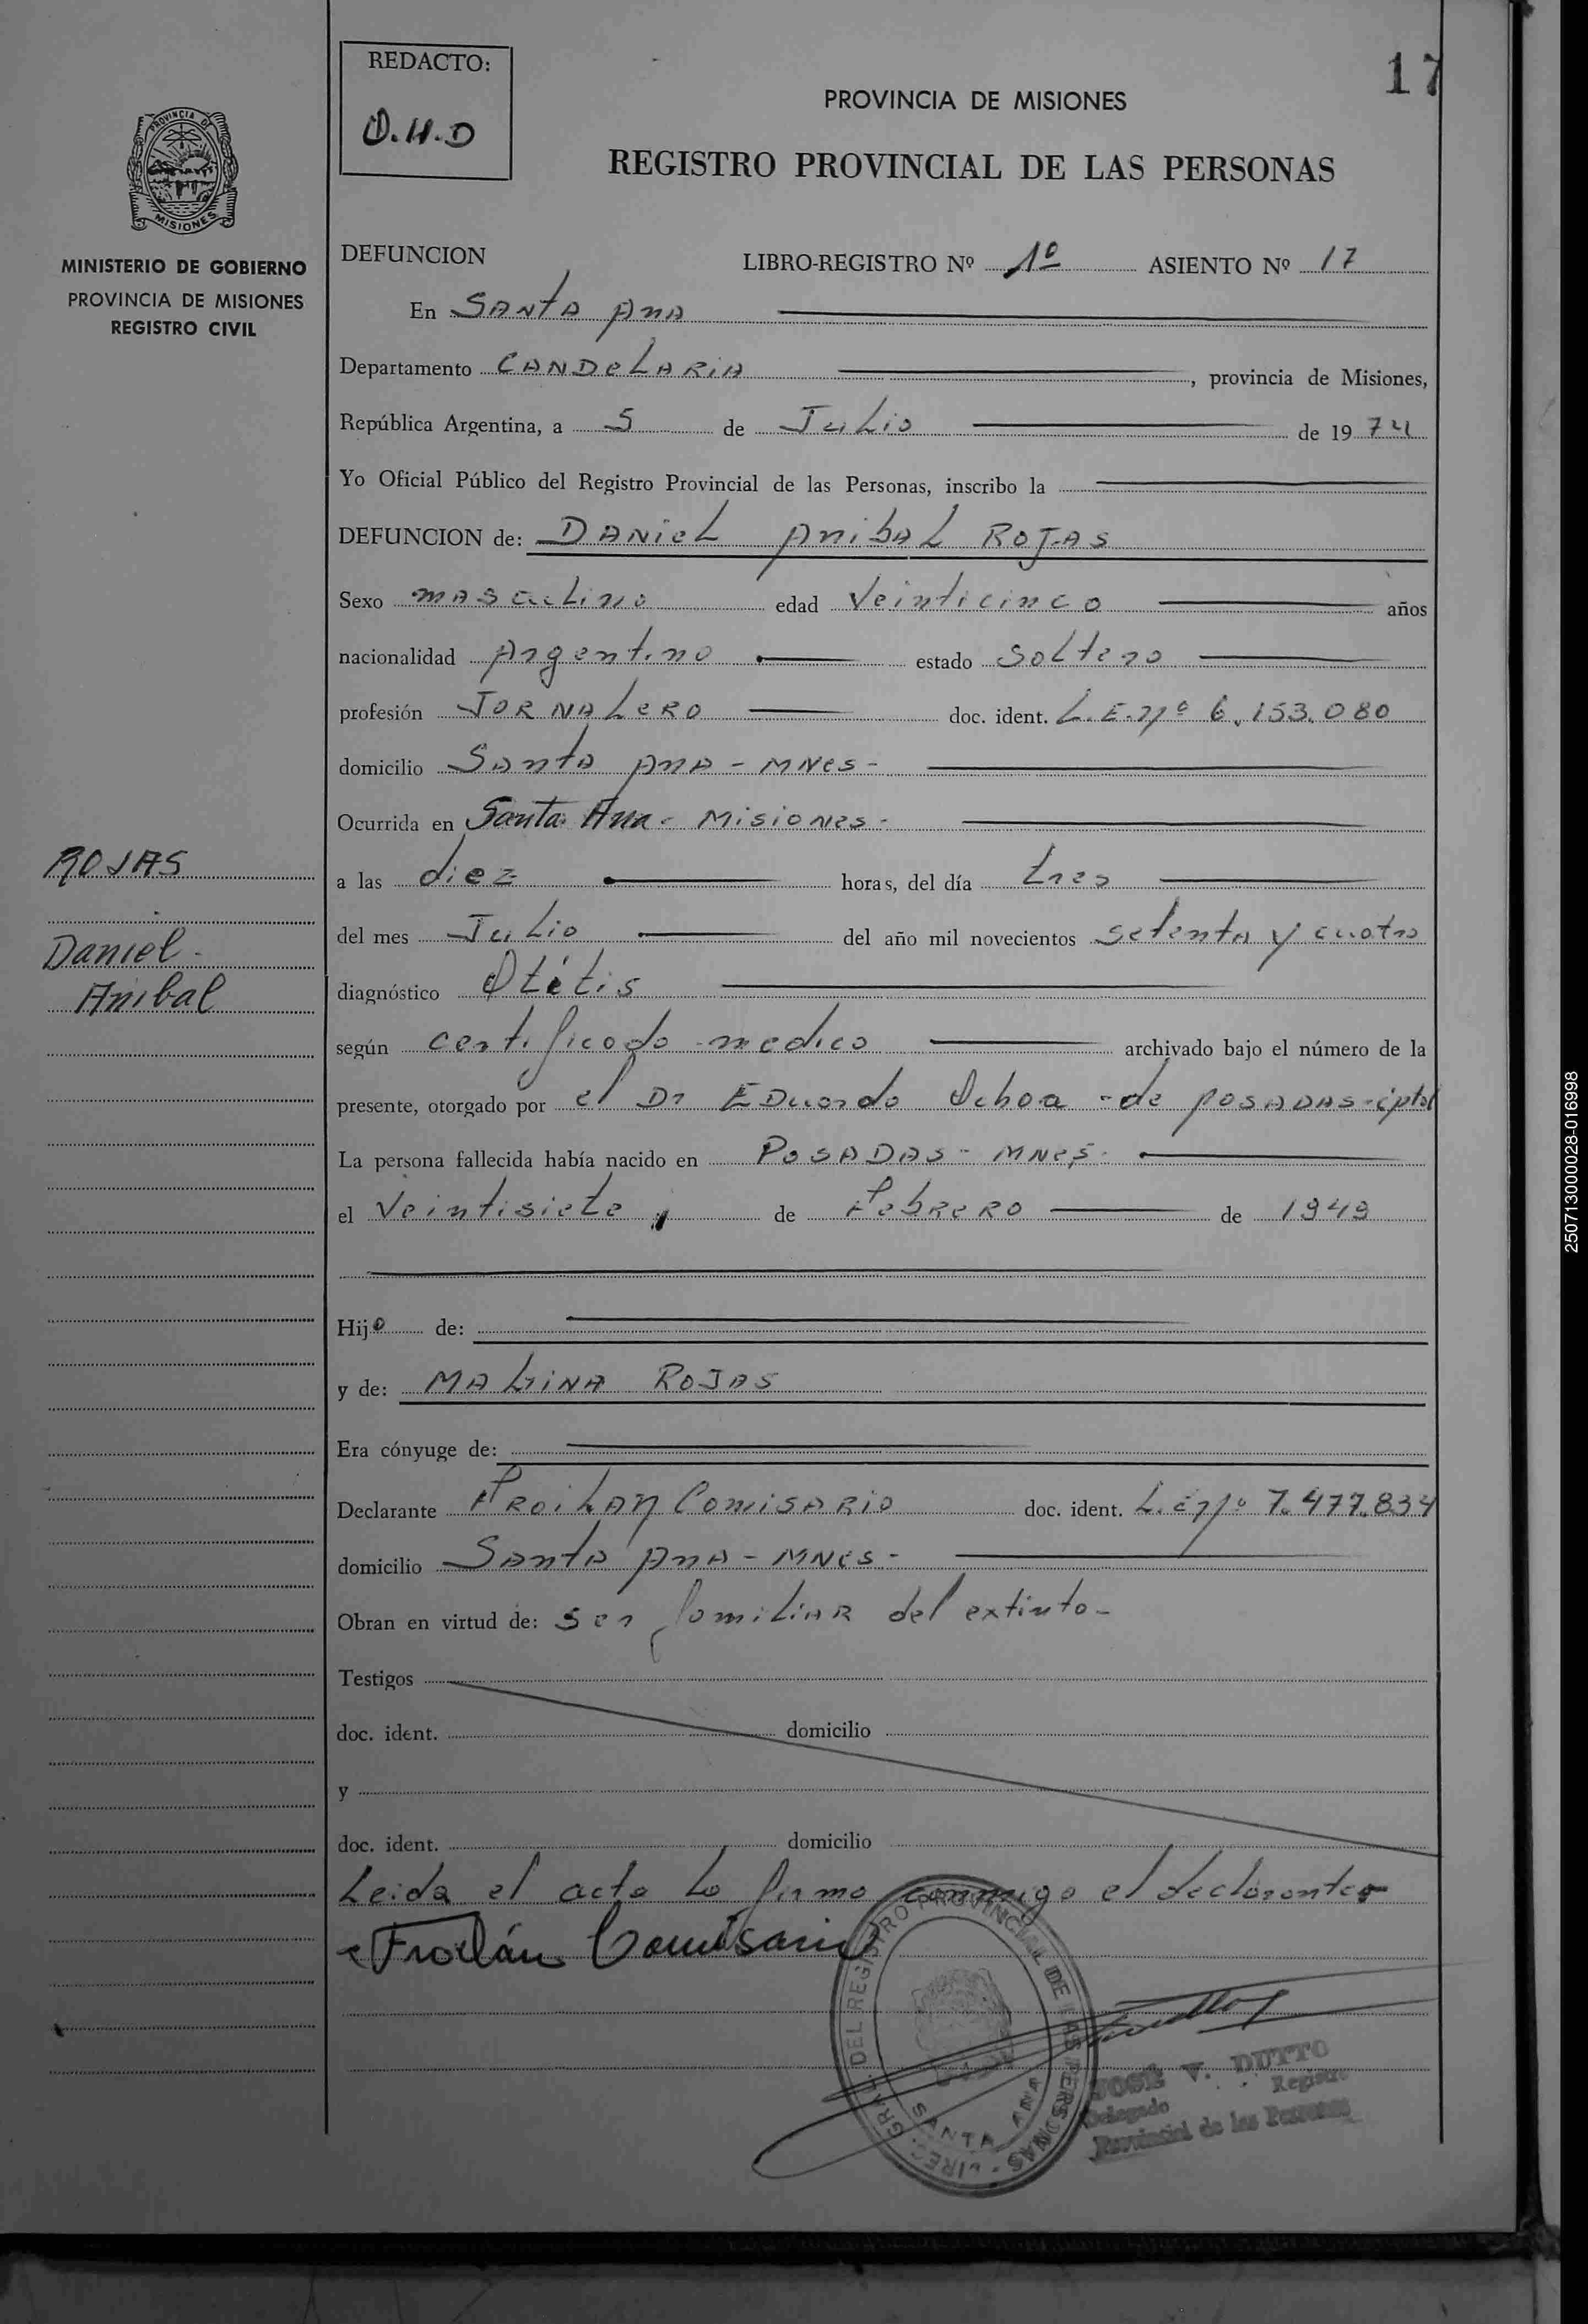 17
REDACTO:
O.H.D
PROVINCIA DE MISIONES
REGISTRO PROVINCIAL DE LAS PERSONAS
PROVINCIA DE
MISIONES
MINISTERIO DE GOBIERNO
PROVINCIA DE MISIONES
REGISTRO CIVIL
DEFUNCION LIBRO-REGISTRO Nº 1º ASIENTO Nº 17
En SANTA ANA
Departamento CANDELARIA, provincia de Misiones,
República Argentina, a 5 de Julio de 1974
Yo Oficial Público del Registro Provincial de las Personas, inscribo la
DEFUNCION de: DANIEL ANIBAL ROJAS
Sexo masculino edad Veinticinco años
nacionalidad Argentino estado Soltero
profesión JORNALERO doc. ident. L.E.nº 6.153.080
domicilio Santa Ana - MNES -
Ocurrida en Santa Ana - Misiones -
a las diez horas, del día tres
del mes Julio del año mil novecientos setenta y cuatro
diagnóstico Otitis
según certificado medico archivado bajo el número de la
presente, otorgado por el Dr EDuardo Ochoa - de POSADAS-cptal
La persona fallecida había nacido en POSADAS - MNES-
el Veintisiete de Febrero de 1949
Hijo de:
y de: MALINA ROJAS
Era cónyuge de:
Declarante FROILAN COMISARIO doc. ident. L.E nº 7.477.834
domicilio SANTA ANA - MNES -
Obran en virtud de: ser familiar del extinto-
Testigos
doc. ident. domicilio
y
doc. ident. domicilio
Leida el acta lo firma conmigo el declarante
Froilán Comisario
ROJAS
Daniel -
Anibal
DIREC. GRAL. DEL REGISTRO PROVINCIAL DE LAS PERSONAS -
SANTA ANA
JOSÉ V. DUTTO
Delegado Registro
Provincial de las Personas
250713000028-016998